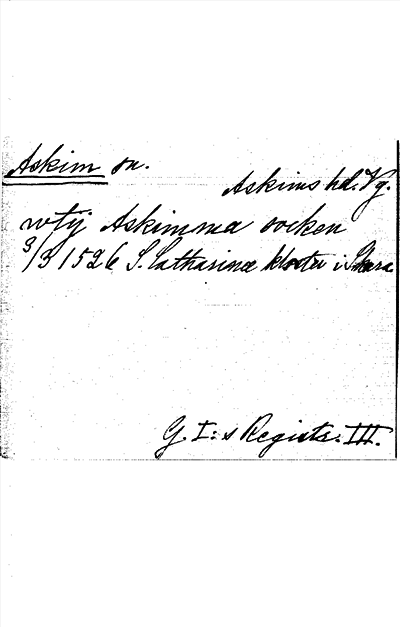 Askim sn.
Askims hd. Vg.
wtij Askimma socken
3/3 1526 S. Catharinæ kloster i Skara
G I:s Registr. III.